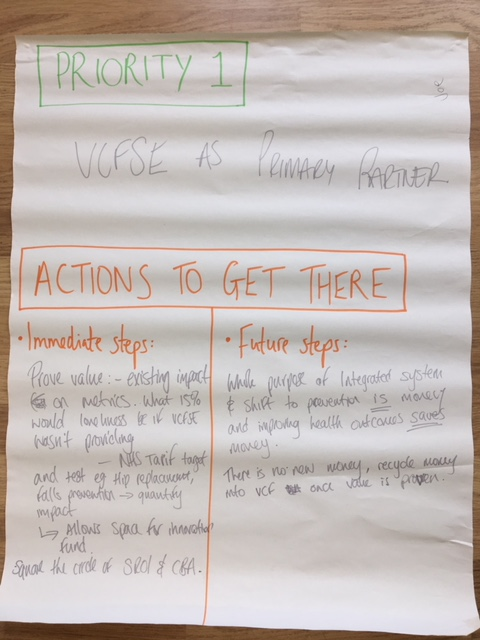 PRIORITY 1
VCFSE AS PRIMARY PARTNER
ACTIONS TO GET THERE
• Immediate steps:
Prove value:- existing impact
on metrics. What 15%
would loneliness be if VCFSE
wasn't providing
- NHS Tarif target
and test eg Hip replacement,
falls prevention → quantify
impact
↳ Allows space for innovation
fund.
Square the circle of SROI & CBA.
• Future steps:
Whole purpose of Integrated system
& shift to prevention IS money
and improving health outcomes saves
money.
There is no new money, recycle money
into VCF once value is proven.